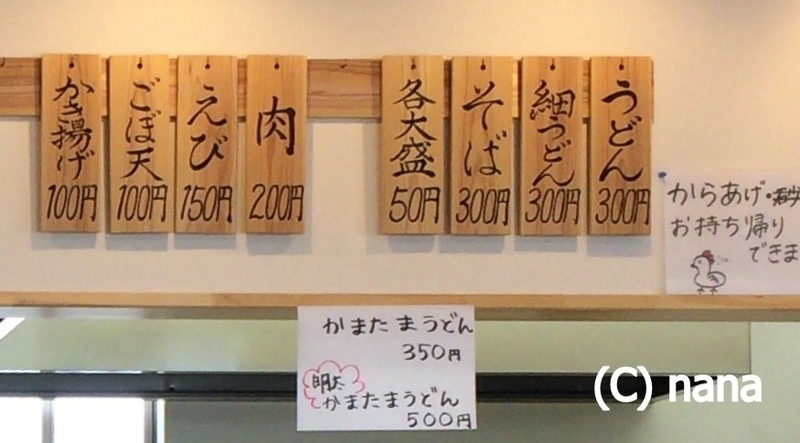 うどん
300円
細うどん
300円
そば
300円
各大盛
50円
肉
200円
えび
150円
ごぼ天
100円
かき揚げ
100円
からあげ・
お持ち帰り
できま
かまたまうどん
350円
明太
かまたまうどん
500円
(C) nana